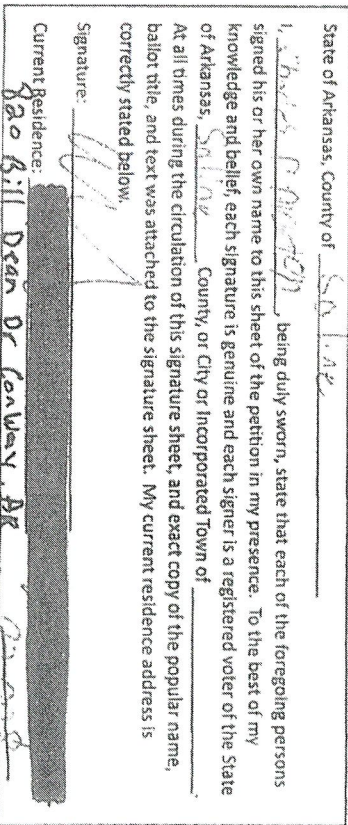 State of Arkansas, County of Saline
I, , being duly sworn, state that each of the foregoing persons
signed his or her own name to this sheet of the petition in my presence. To the best of my
knowledge and belief, each signature is genuine and each signer is a registered voter of the State
of Arkansas, Saline County, or City or Incorporated Town of .
At all times during the circulation of this signature sheet, and exact copy of the popular name,
ballot title, and text was attached to the signature sheet. My current residence address is
correctly stated below.
Signature:
Current Residence:
820 Bill Dean Dr Conway, AR